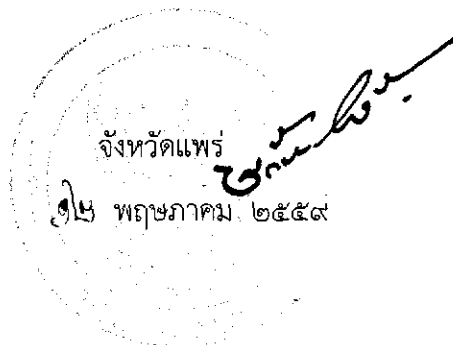 จังหวัดแพร่
๑๒ พฤษภาคม ๒๕๕๙